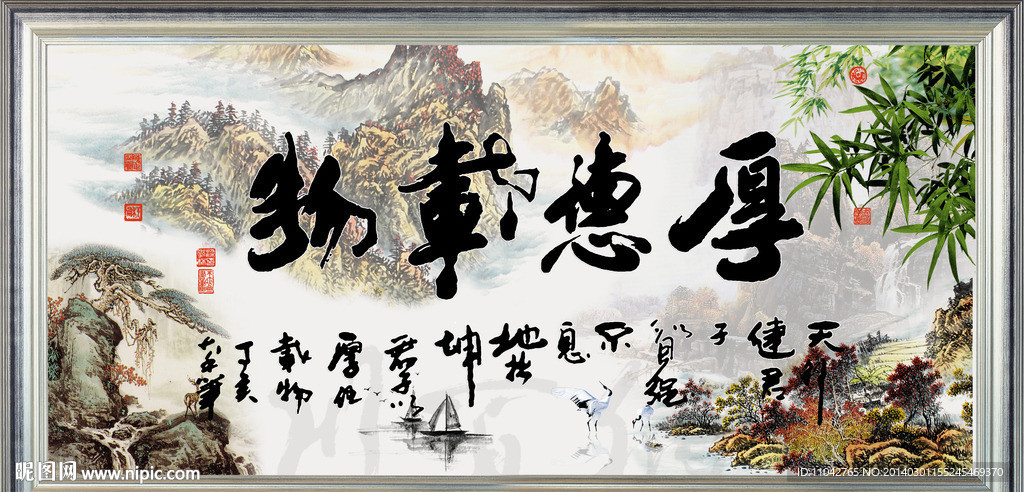 厚德載物
天行
健君
子
以自强
不
息
地势
坤
君子以
厚德
載物
丁亥
昵图网 www.nipic.com
ID:11042765 NO:20140301155245469370